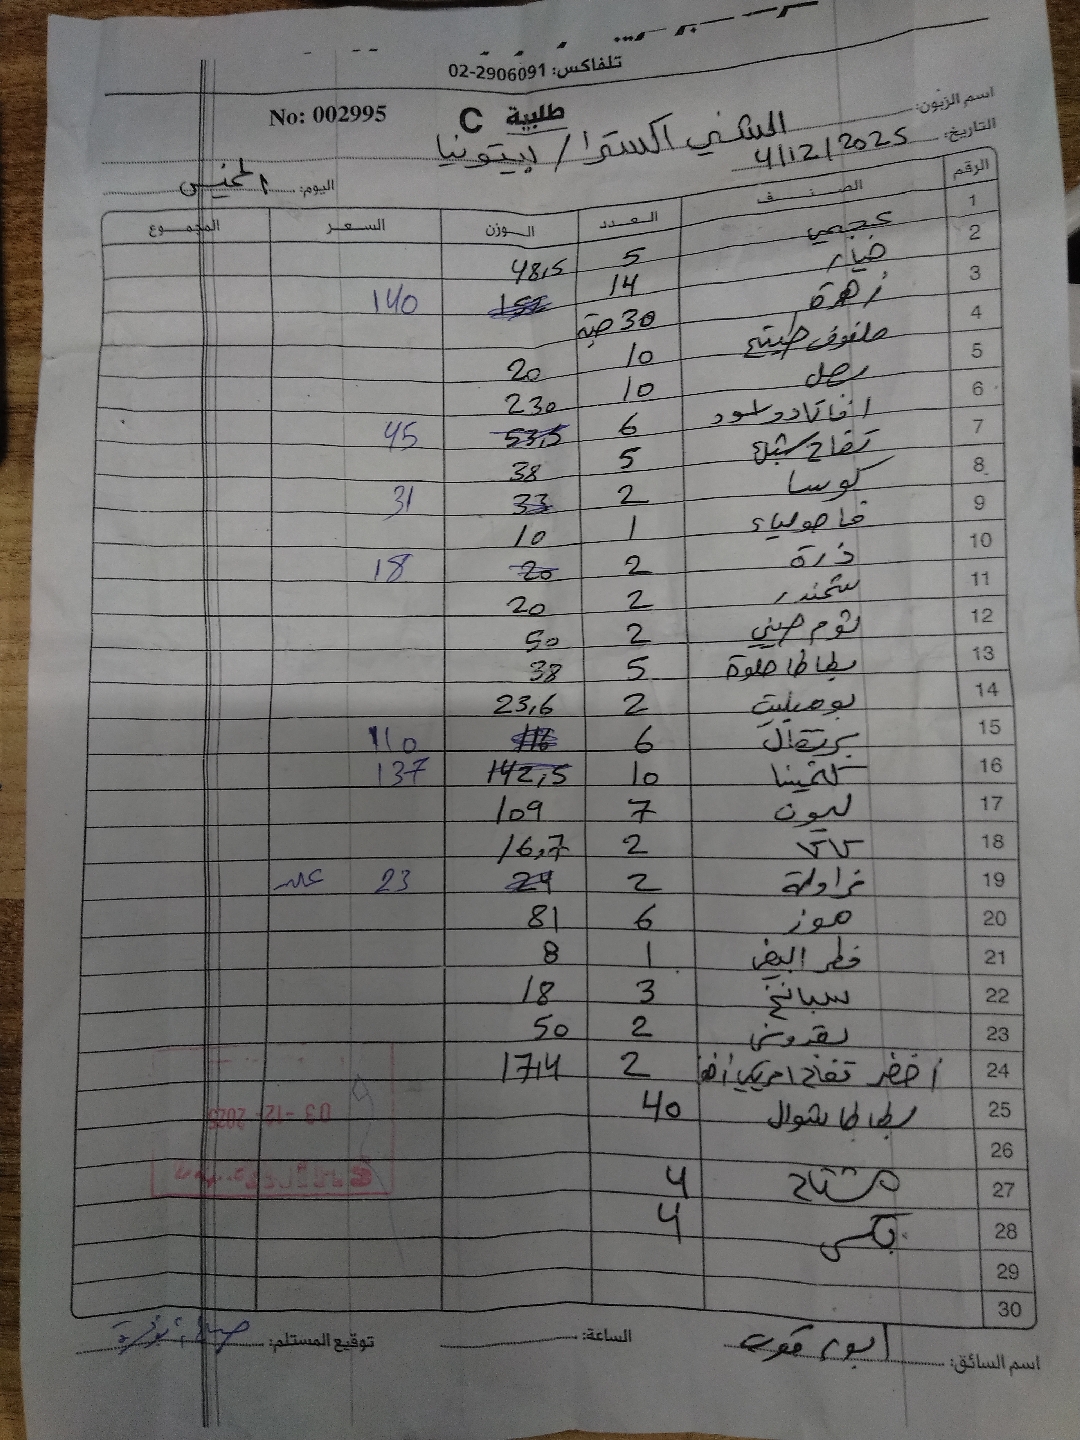 تلفاكس: 02-2906091
No: 002995 طلبية C
اسم الزبون: الشني اكسترا / بيتونيا
التاريخ: 4/12/2025
اليوم: الخميس
الرقم الصنف العدد الوزن السعر المجموع
1 عجمي 5 48,5
2 خيار 14 140
3 زهرة 30 حبة
4 ملفوف 10 20
5 بصل 10 230
6 افاكادو اسود 6 53,5 45
7 تفاح 5 38
8 كوسا 2 33 31
9 فاصولياء 1 10
10 ذرة 2 20 18
11 شمندر 2 20
12 ثوم صيني 2 50
13 بطاطا حلوة 5 38
14 بوميليت 2 23,6
15 برتقال 6 116 110
16 كلمنتينا 10 142,5 137
17 ليمون 7 109
18 كاكا 2 16,7
19 فراولة 2 24 23 علب
20 موز 6 81
21 فطر ابيض 1 8
22 سبانخ 3 18
23 بقدونس 2 50
24 تفاح امريكي اخضر 2 17,4
25 بطاطا شوال 40
26
27 مشتاح 4
28 بكس 4
29
30
03-12-2025
اسم السائق:
الساعة:
توقيع المستلم: